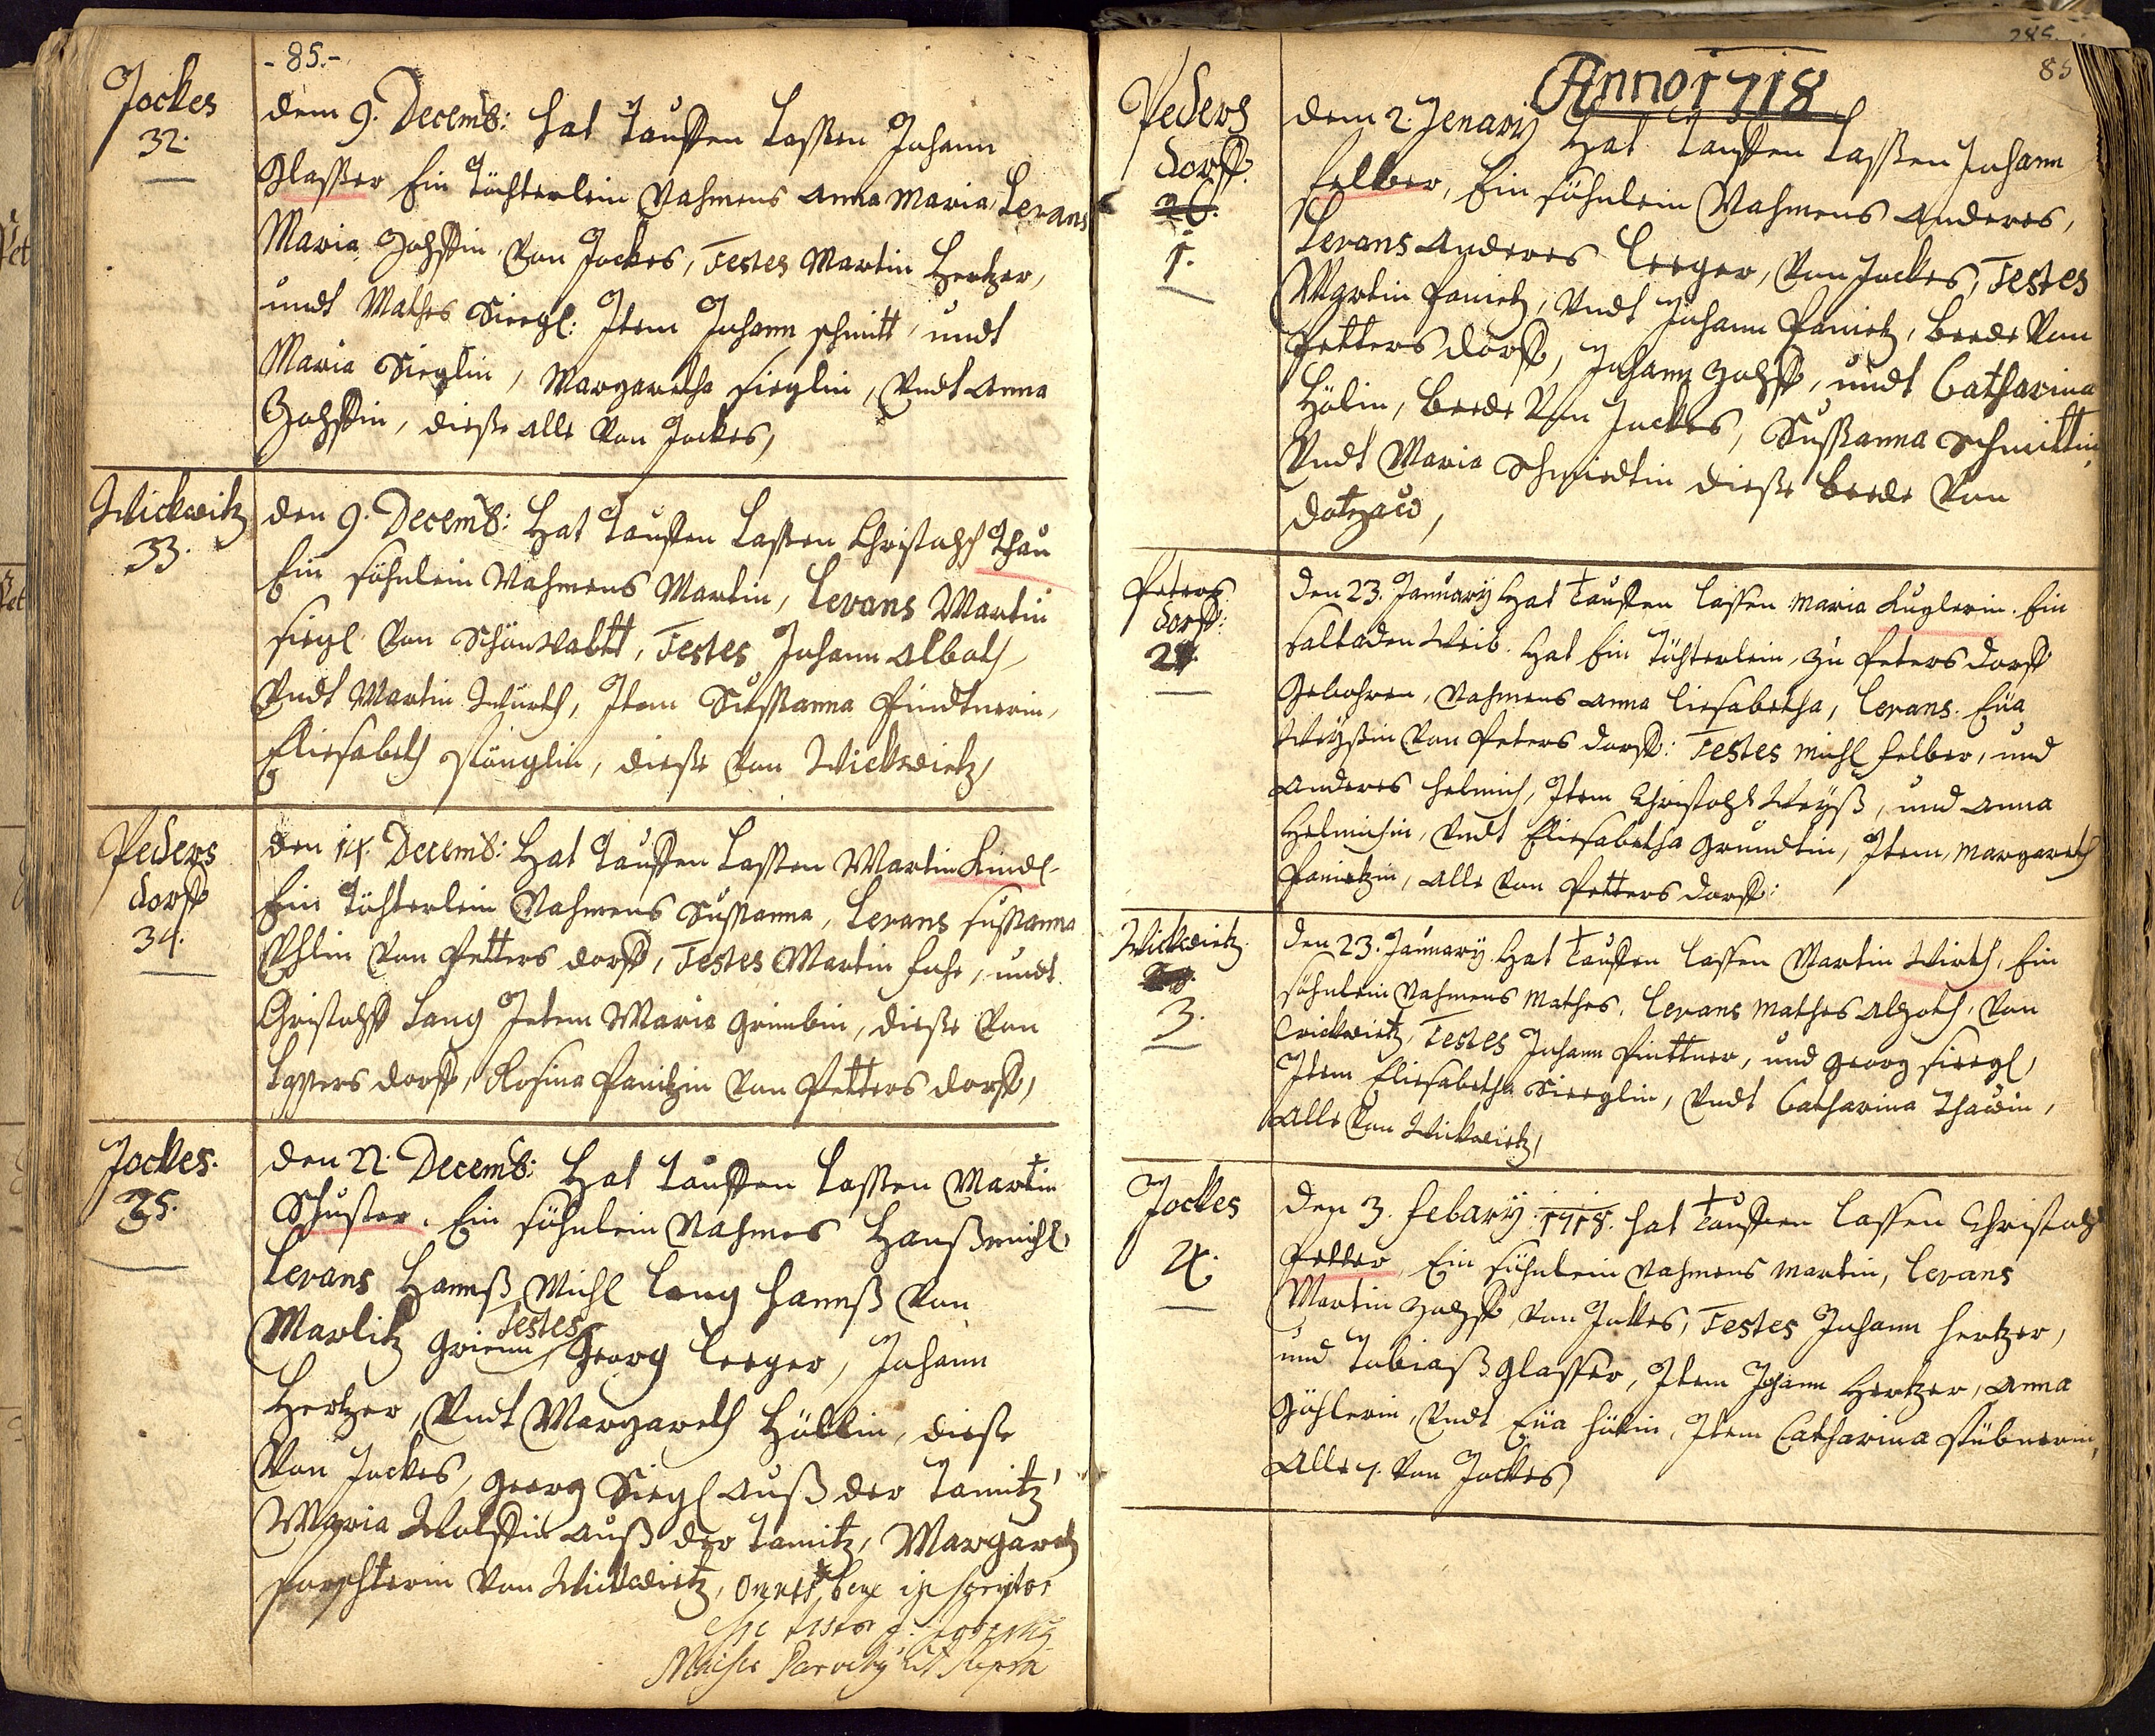 - 85.-
Jockes
32.
dem 9. Decemb: hat Tauffen Lassen Johann
Glasser Ein Töchterlein Nahmens Anna Maria, Levans
Maria Zohsin, Von Jockes, Testes Martin Hertzer,
undt Mathes Siegl: Item Johann schmitt, undt
Maria Sieglin, Margaretha sieglin, Vndt Anna
diese alle Von Jockes,
Wickwitz
33.
den 9. Decemb: Hat Tauffen Lassen Christoph Thau
Ein söhnlein Nahmens Martin, Levans Martin
siegl Von Schönwaltt, Testes Johann Alboth,
Vndt Martin Würth, Item Sussanna Pindtnerin,
Eliesabeth stänglin, diese Von Wickwietz,
Peders
dorff
34.
den 14. Decemb: Hat Tauffen Lassen Martin Kindl
Ein Töchterlein Nahmens Sussanna, Levans sussanna
Von Petters dorff, Testes Martin undt
Christoph Lang Item Maria diese Von
dorff, Rosina Panitzin Von Petters dorff,
Jockes.
35.
den 22. Decemb: Hat Tauffen Lassen Martin
Schuster. Ein söhnlein Nahmes Hanß michl
Levans Hannß Michl Lang hannß Von
Marlitz Testes Georg Leeger, Johann
Hertzer, Vndt Margareth Höllin, diese
Von Jockes, Georg Siegl Auß der Tamitz,
Maria Auß der Tamitz, Margareth
Von Wickwietz, omnes bene in scriptos
esse testor
Parochy ut supra
85
Anno 1718
Peders
dorff.
26.
1.
dem 2. Jenary Hat Tauffen Lassen Johann
felber, Ein söhnlein Nahmens Anderes,
Levans Anderes Leeger, Von Jockes, Testes
Martin Panietz, Vndt Johann Panietz, beede Von
Petters dorff, Johann undt Catharina
Hölin, beede Von Jockes, Sussanna Schmittin,
Vndt Maria Schmiedtin diese beede Von
Peters
dorff:
2.
den 23. January Hat Tauffen lassen Maria Kuglerin. Ein
saltaden Weib. Hat Ein Töchterlein, zu Peters dorff
Gebohren, Nahmens Anna liesabetha, levans. Eüa
Weyßin Von Peters dorff: Testes michl felber, und
Anderes helmich, Item Christoph Weyß, und Anna
Helmichin, Vndt Eliesabetha Grundtin, Item, Margareth
Panietzin, Alle Von Petters dorff:
Wickwietz.
3.
den 23. January. Hat Tauffen lassen Martin Wirth, Ein
söhnlein Nahmens Mathes, levans Mathes Von
Wickwietz, Testes Johann Pinttner, und Georg siegl,
Item Eliesabetha Siegglin, Vndt Catharina Thauin,
Alle Von Wickwietz,
Jockes
4.
den 3. febary: 1718. hat Tauffen lassen Christoph
Petter, Ein söhnlein Nahmens Martin, levans
Martin Von Jockes, Testes Johann hertzer,
und Tobiaß Glasser, Item Johann Hertzer, Anna
Vndt Eüa hölin, Item Catharina stübnerin,
Alle 7. Von Jockes,